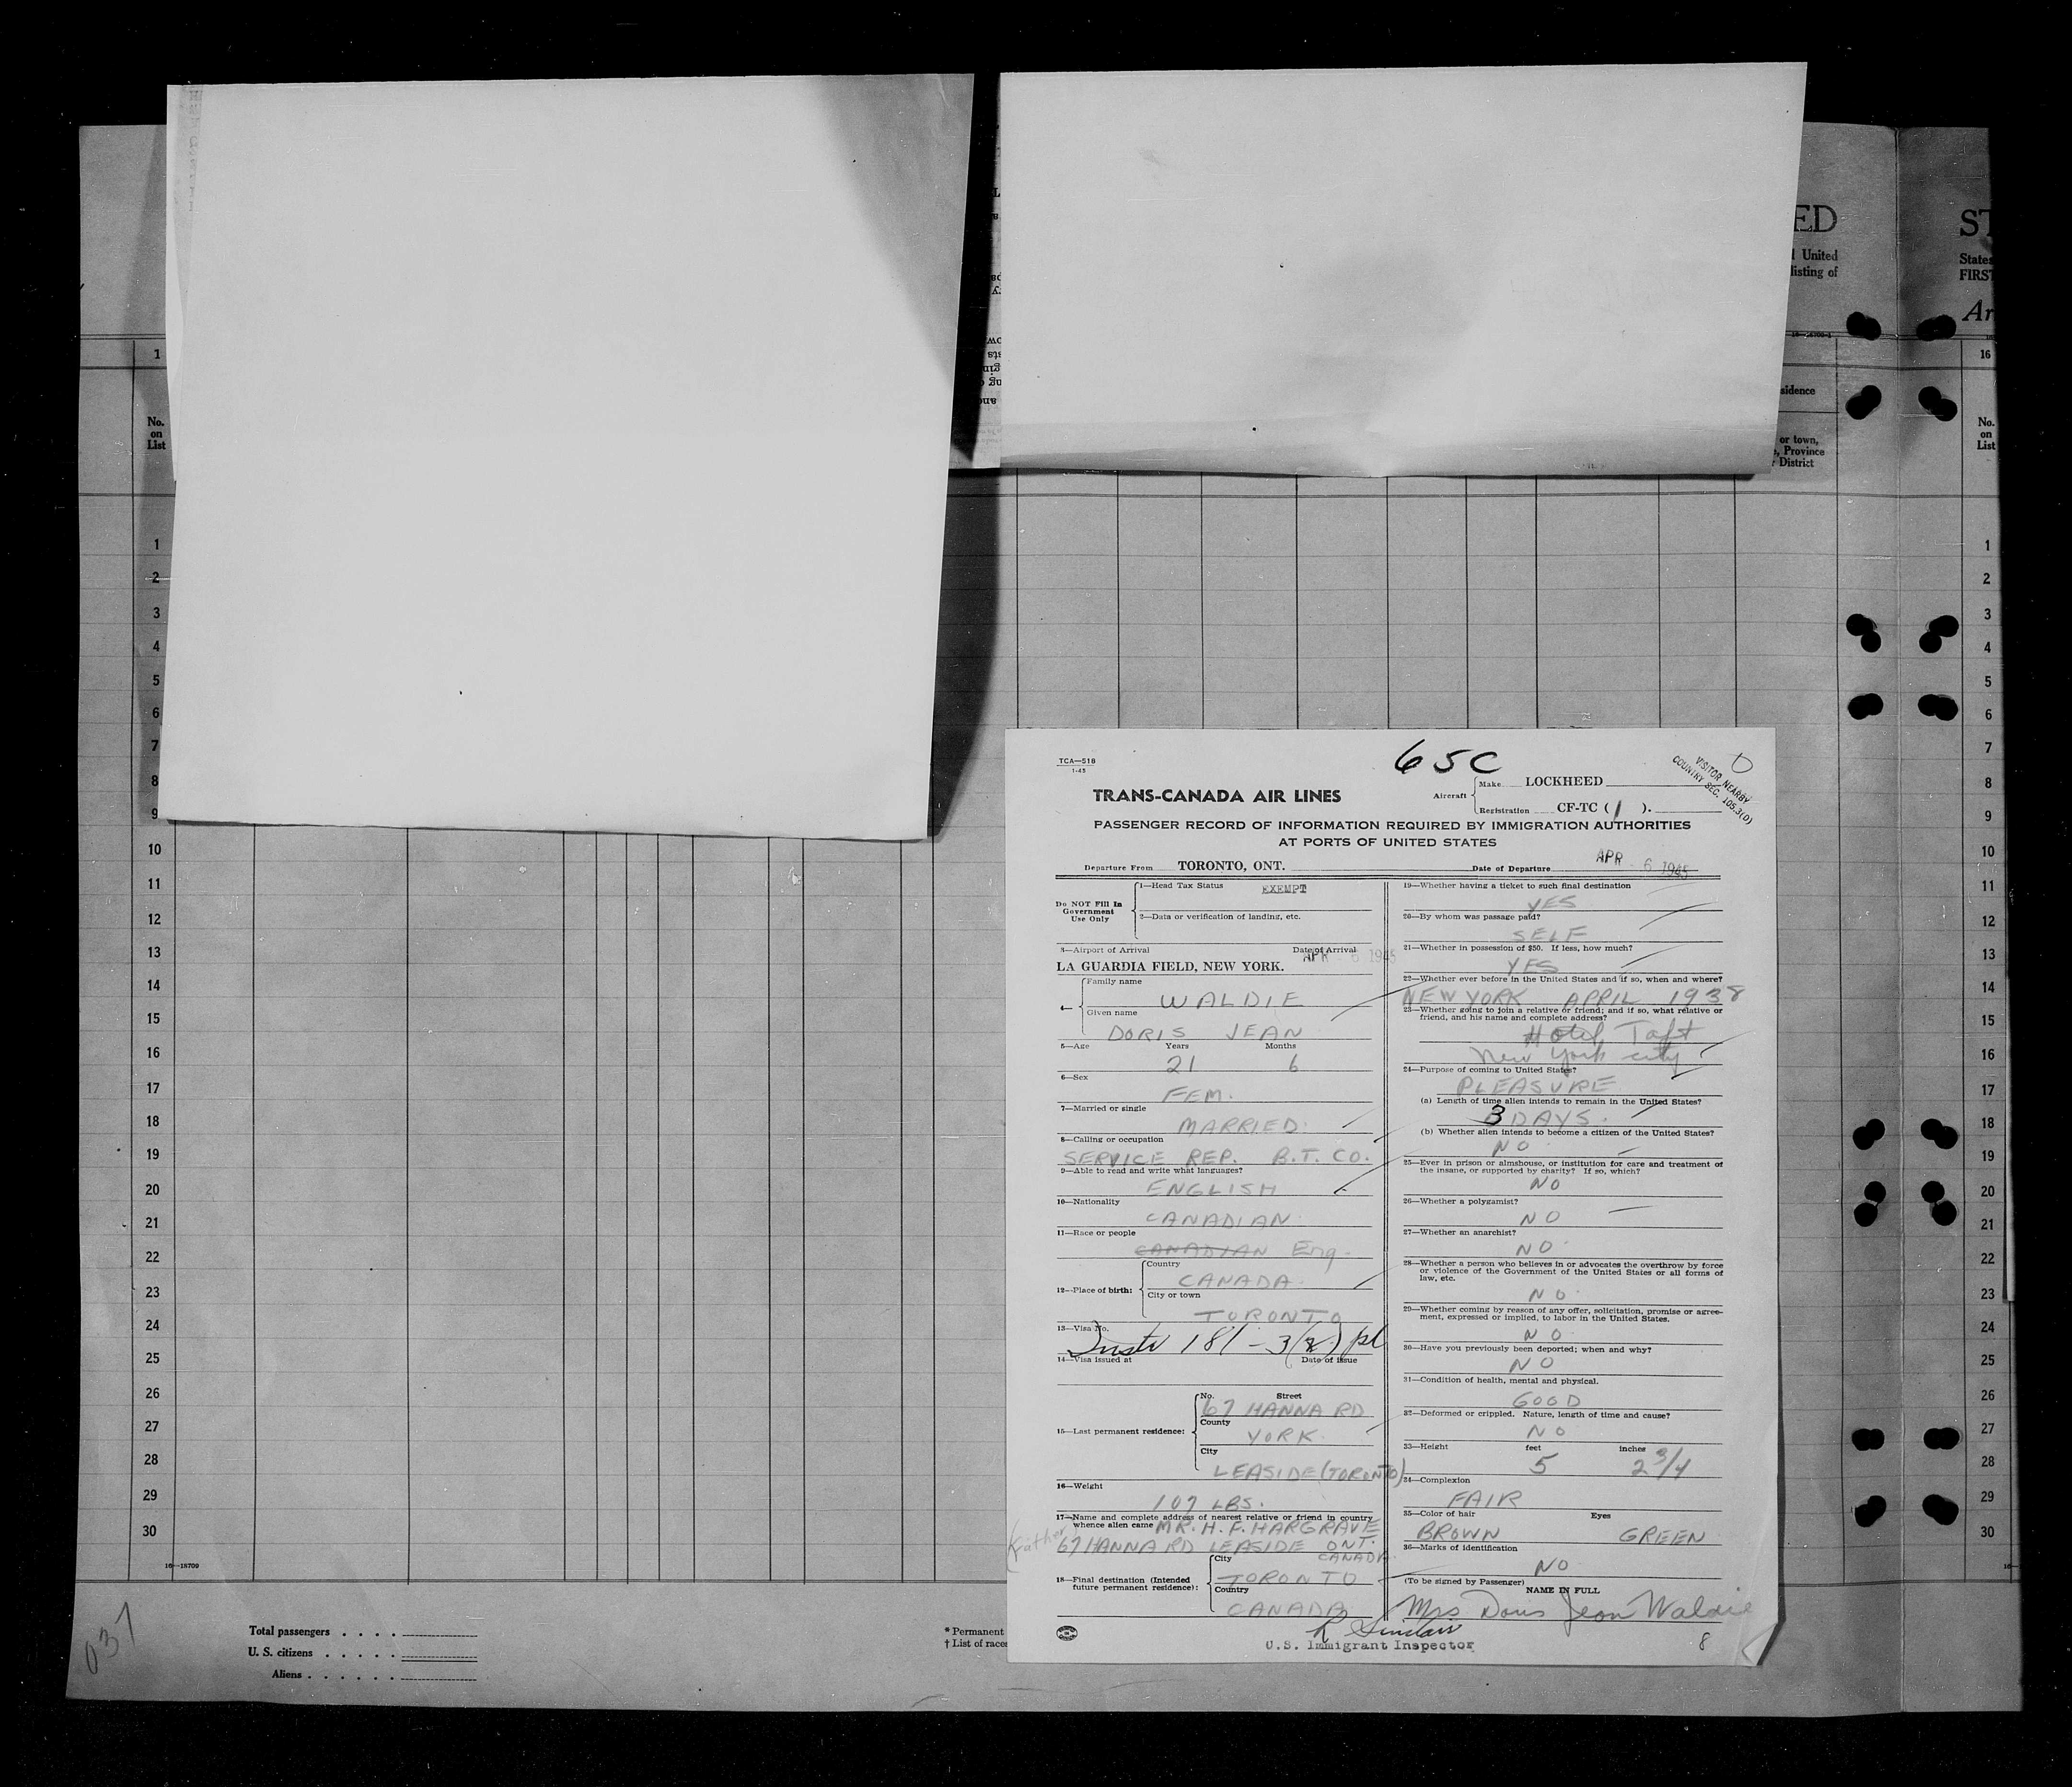 ED
l United
listing of
ST
States
FIRST
Ar
1
16
sidence
No.
on
List
or town,
, Province
District
No.
on
List
1
2
3
4
5
6
7
8
9
10
11
12
13
14
15
16
17
18
19
20
21
22
23
24
25
26
27
28
29
30
16—18709
Total passengers . . . .
U. S. citizens . . . . .
Aliens . . . . . .
* Permanent
† List of races
037
1
2
3
4
5
6
7
8
9
10
11
12
13
14
15
16
17
18
19
20
21
22
23
24
25
26
27
28
29
30
TCA—518
1-45
65C
TRANS-CANADA AIR LINES
Aircraft
Make LOCKHEED
Registration CF-TC ( 1 ).
VISITOR NEARBY
COUNTRY SEC. 105.3(D)
PASSENGER RECORD OF INFORMATION REQUIRED BY IMMIGRATION AUTHORITIES
AT PORTS OF UNITED STATES
Departure From TORONTO, ONT. Date of Departure APR - 6 1945
Do NOT Fill In
Government
Use Only
1—Head Tax Status EXEMPT
2—Data or verification of landing, etc.
3—Airport of Arrival Date of Arrival
LA GUARDIA FIELD, NEW YORK. APR - 6 1945
4—
Family name
WALDIE
Given name
DORIS JEAN
5—Age Years Months
21 6
6—Sex
FEM.
7—Married or single
MARRIED
8—Calling or occupation
SERVICE REP. B.T. CO.
9—Able to read and write what languages?
ENGLISH
10—Nationality
CANADIAN
11—Race or people
CANADIAN Eng.
12—Place of birth:
Country
CANADA
City or town
TORONTO
13—Visa No.
Instr 181 - 3(8) pl
14—Visa issued at Date of issue
15—Last permanent residence:
No. Street
67 HANNA RD
County
YORK
City
LEASIDE (TORONTO)
16—Weight
107 LBS.
17—Name and complete address of nearest relative or friend in country
whence alien came MR. H. F. HARGRAVE
(Father) 67 HANNA RD LEASIDE ONT.
CANADA
18—Final destination (Intended
future permanent residence):
City
TORONTO
Country
CANADA
19—Whether having a ticket to such final destination
YES
20—By whom was passage paid?
SELF
21—Whether in possession of $50. If less, how much?
YES
22—Whether ever before in the United States and if so, when and where?
NEW YORK APRIL 1938
23—Whether going to join a relative or friend; and if so, what relative or
friend, and his name and complete address?
Hotel Taft
New York city
24—Purpose of coming to United States?
PLEASURE
(a) Length of time alien intends to remain in the United States?
3 DAYS.
(b) Whether alien intends to become a citizen of the United States?
NO
25—Ever in prison or almshouse, or institution for care and treatment of
the insane, or supported by charity? If so, which?
NO
26—Whether a polygamist?
NO
27—Whether an anarchist?
NO
28—Whether a person who believes in or advocates the overthrow by force
or violence of the Government of the United States or all forms of
law, etc.
NO
29—Whether coming by reason of any offer, solicitation, promise or agree-
ment, expressed or implied, to labor in the United States.
NO
30—Have you previously been deported; when and why?
NO
31—Condition of health, mental and physical.
GOOD
32—Deformed or crippled. Nature, length of time and cause?
NO
33—Height feet inches
5 2 3/4
34—Complexion
FAIR
35—Color of hair Eyes
BROWN GREEN
36—Marks of identification
NO
(To be signed by Passenger)
NAME IN FULL
Mrs Doris Jean Waldie
R Sinclair
U.S. Immigrant Inspector
8